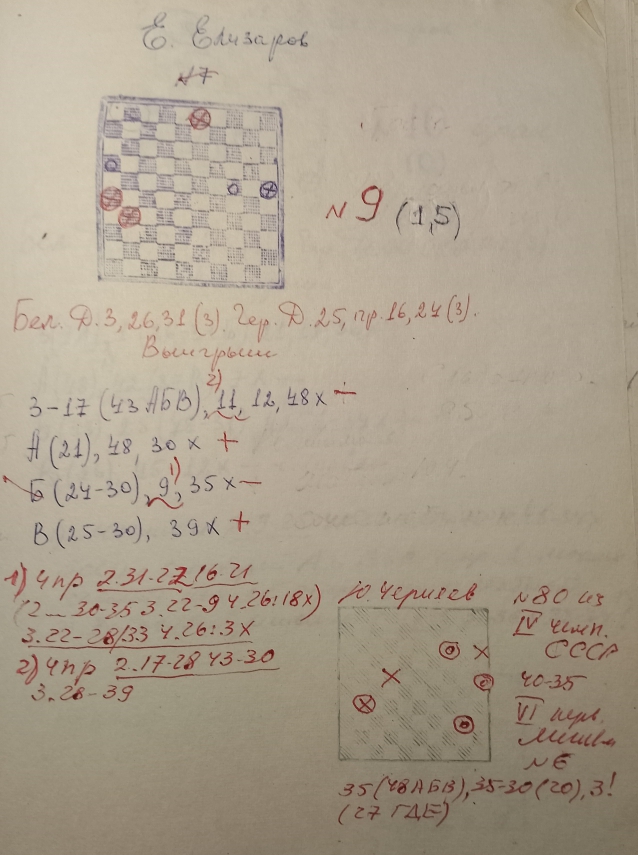 Е. Елизаров
№7
№9 (1,5)
Бел. Д. 3, 26, 31 (3). Чер. Д. 25, пр. 16, 24 (3).
Выигрыш
2)
3-17 (43 АБВ), 11, 12, 48 х -
А (21), 48, 30 х +
1)
Б (24-30), 9, 35 х -
В (25-30), 39 х +
1) Чпр 2.31-27 16-21
(2 ... 30-35 3.22-9 4.26:18х)
3.22-28/33 4.26:3х
2) Чпр 2.17-28 43-30
3.28-39
Ю. Чертов
№80 из
IV чемп.
СССР
40-35
VI перв.
№6
35 (48 АБВ), 35-30 (20), 3!
(27 ГДЕ)